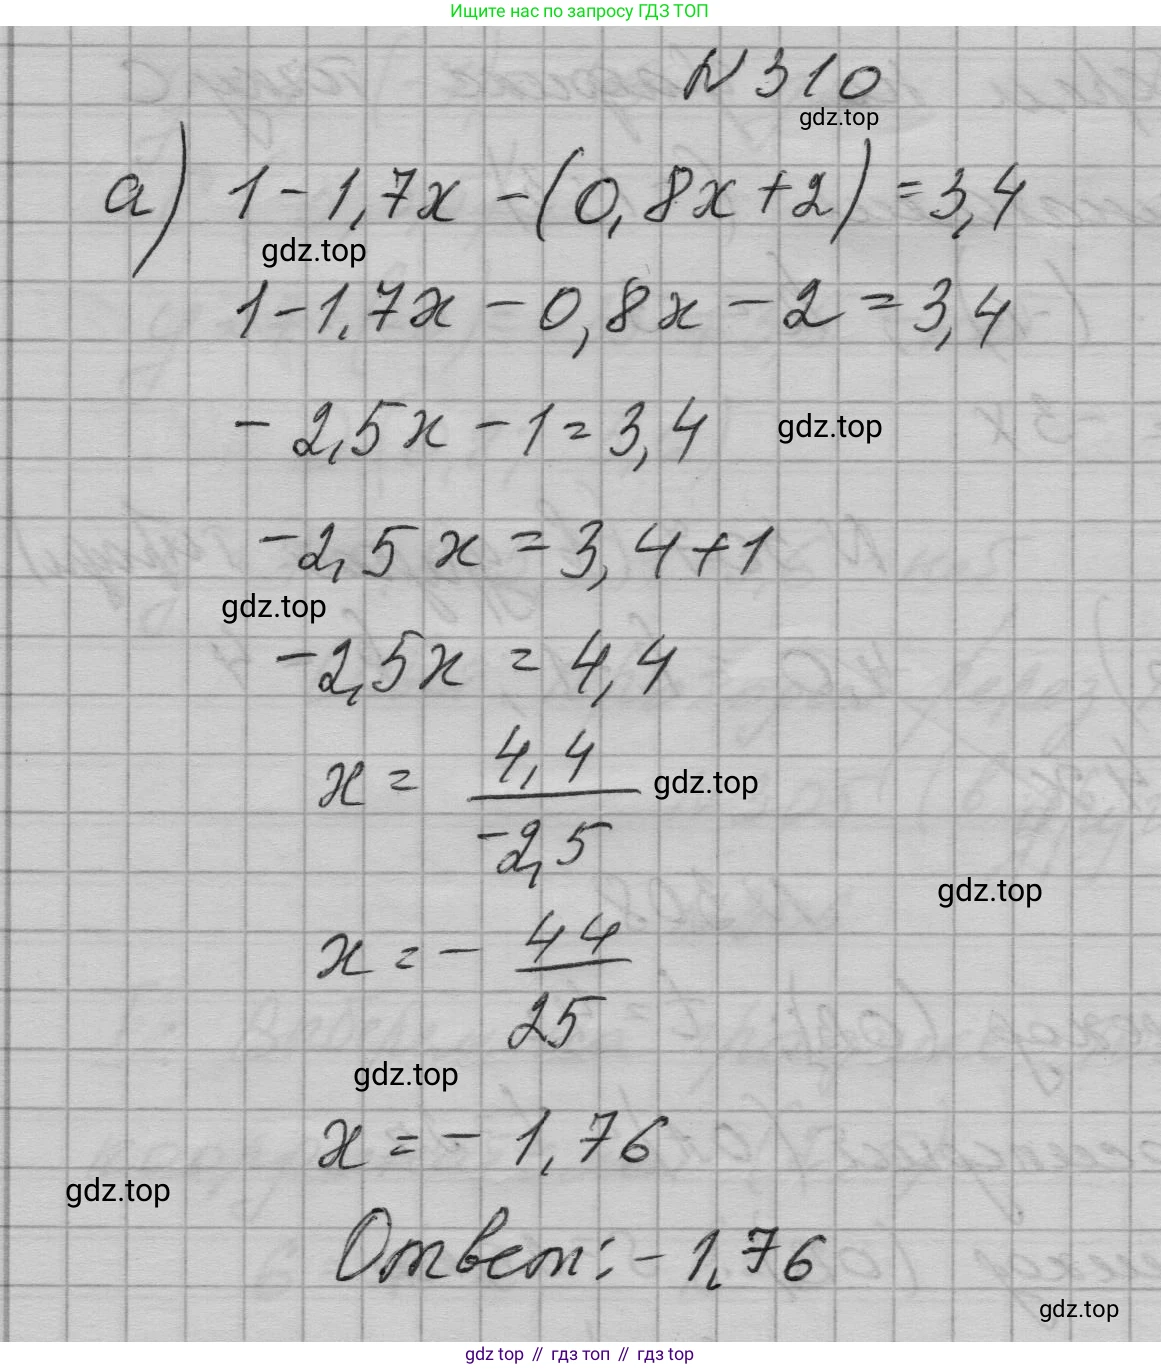 Ищите нас по запросу ГДЗ ТОП
N 310
gdz.top
а) 1-1,7x-(0,8x+2)=3,4
gdz.top
1-1,7x-0,8x-2=3,4
-2,5x-1=3,4
gdz.top
-2,5x=3,4+1
gdz.top
-2,5x=4,4
x=4,4/-2,5
gdz.top
gdz.top
x=-44/25
gdz.top
x=-1,76
gdz.top
Ответ: -1,76
gdz.top
gdz top // гдз топ // gdz top